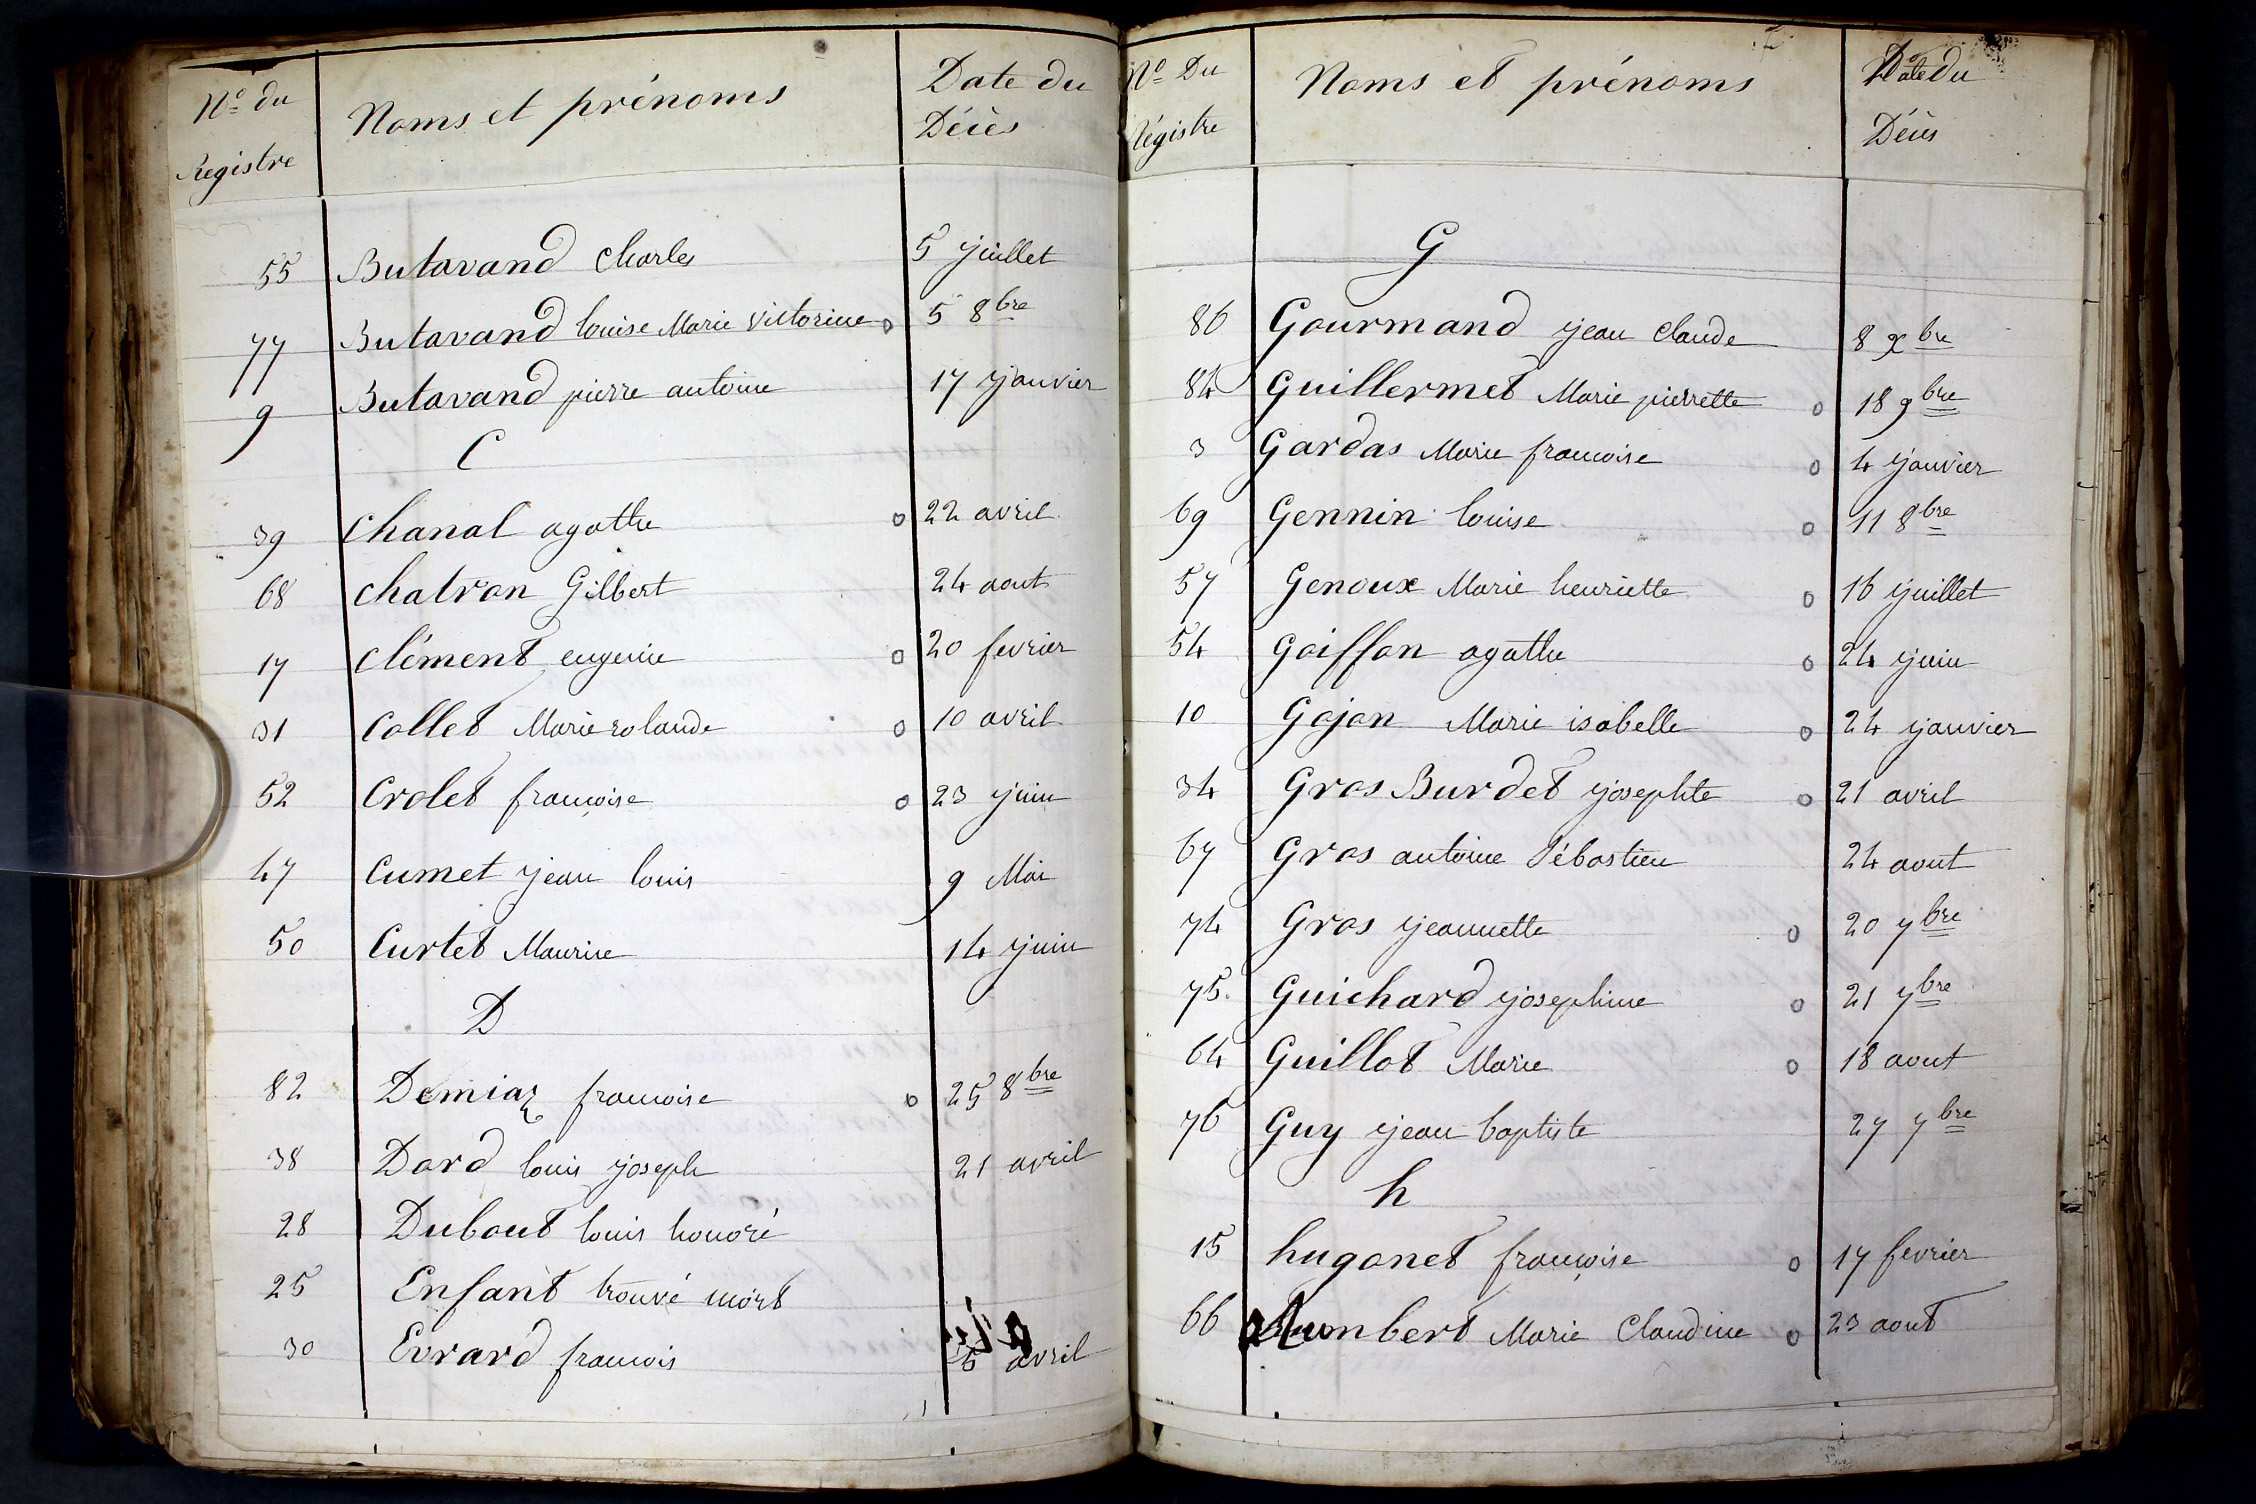 N.º du Registre Noms et prénoms Date du Décès
55 Butavand Charles 5 juillet
77 Butavand louise Marie Victorine o 5 8bre
9 Butavand pierre antoine 17 janvier
C
39 Chanal agathe o 22 avril
68 chatron Gilbert 24 aout
17 Clément eugenie o 20 fevrier
31 Collet Marie rolande o 10 avril
52 Crolet françoise o 23 juin
47 Cumet jean louis 9 Mai
50 Curtet Maurice 14 juin
D
82 Demiaz francoise o 25 8bre
38 Dard louis joseph 21 avril
28 Dubout louis honoré
25 Enfant trouvé mort
30 Evrard francois avril
Nº Du Régistre Noms et prénoms Date du Décès
G
86 Gourmand jean Claude 8 xbre
84 Guillermet Marie pierrette o 18 9bre
3 Gardas Marie francoise o 4 janvier
69 Gennin louise o 11 8bre
57 Genoux Marie henriette o 16 juillet
54 Goiffon agathe o 24 juin
10 Gojon Marie isabelle o 24 janvier
34 Gros Burdet josephte o 21 avril
67 Gros antoine Sébastien 24 aout
74 Gros jeannette o 20 7bre
75. Guichard josephine o 21 7bre
64 Guillot Marie o 18 aout
76 Guy jean baptiste 27 7bre
h
15 hugonet françoise o 17 fevrier
66 humbert Marie Claudine o 23 aout